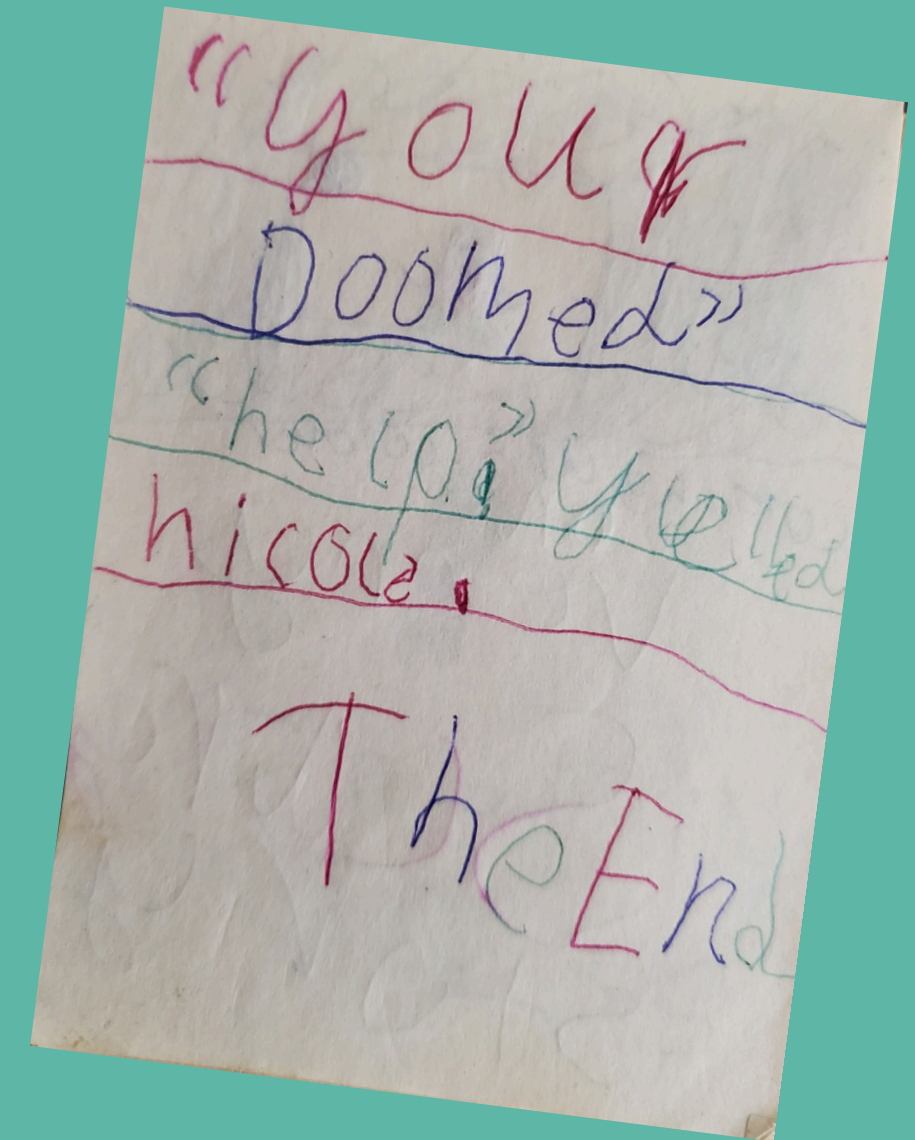 "your
Doomed"
"help." yelled
nicola.
The End